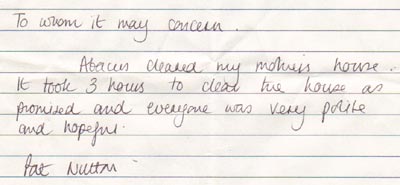 To whom it may concern.
Abacus cleared my mothers house.
It took 3 hours to clear the house as
promised and everyone was very polite
and hopeful.
Pat